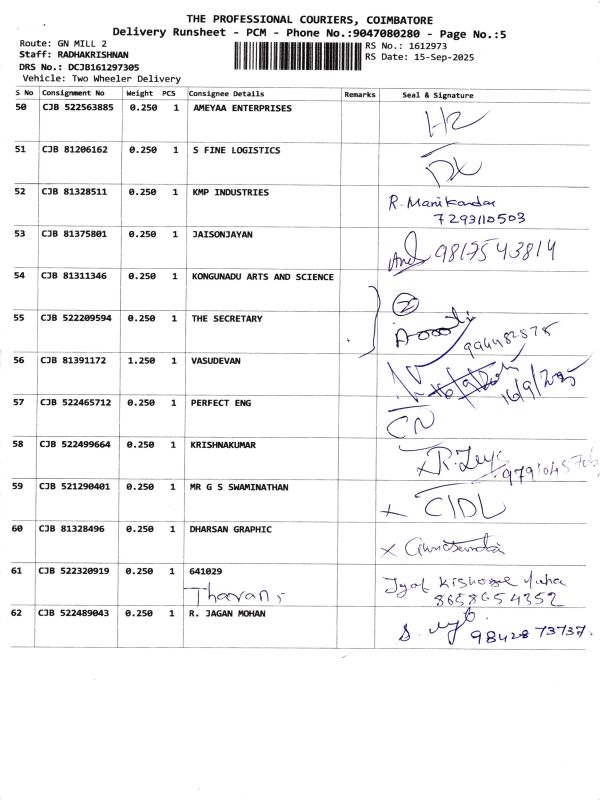 THE PROFESSIONAL COURIERS, COIMBATORE
Delivery Runsheet - PCM - Phone No.:9047080280 - Page No.:5
Route: GN MILL 2
RS No.: 1612973
Staff: RADHAKRISHNAN
RS Date: 15-Sep-2025
DRS No.: DCJB161297305
Vehicle: Two Wheeler Delivery
S No Consignment No Weight PCS Consignee Details Remarks Seal & Signature
50 CJB 522563885 0.250 1 AMEYAA ENTERPRISES
51 CJB 81206162 0.250 1 S FINE LOGISTICS
52 CJB 81328511 0.250 1 KMP INDUSTRIES R. Manikandan
7293110503
53 CJB 81375801 0.250 1 JAISONJAYAN 9817543814
54 CJB 81311346 0.250 1 KONGUNADU ARTS AND SCIENCE 2
55 CJB 522209594 0.250 1 THE SECRETARY
56 CJB 81391172 1.250 1 VASUDEVAN 16/9/2025
57 CJB 522465712 0.250 1 PERFECT ENG CN
58 CJB 522499664 0.250 1 KRISHNAKUMAR
59 CJB 521290401 0.250 1 MR G S SWAMINATHAN x CIDL
60 CJB 81328496 0.250 1 DHARSAN GRAPHIC x
61 CJB 522320919 0.250 1 641029
Tharani
8658654352
62 CJB 522489043 0.250 1 R. JAGAN MOHAN 9842873737.